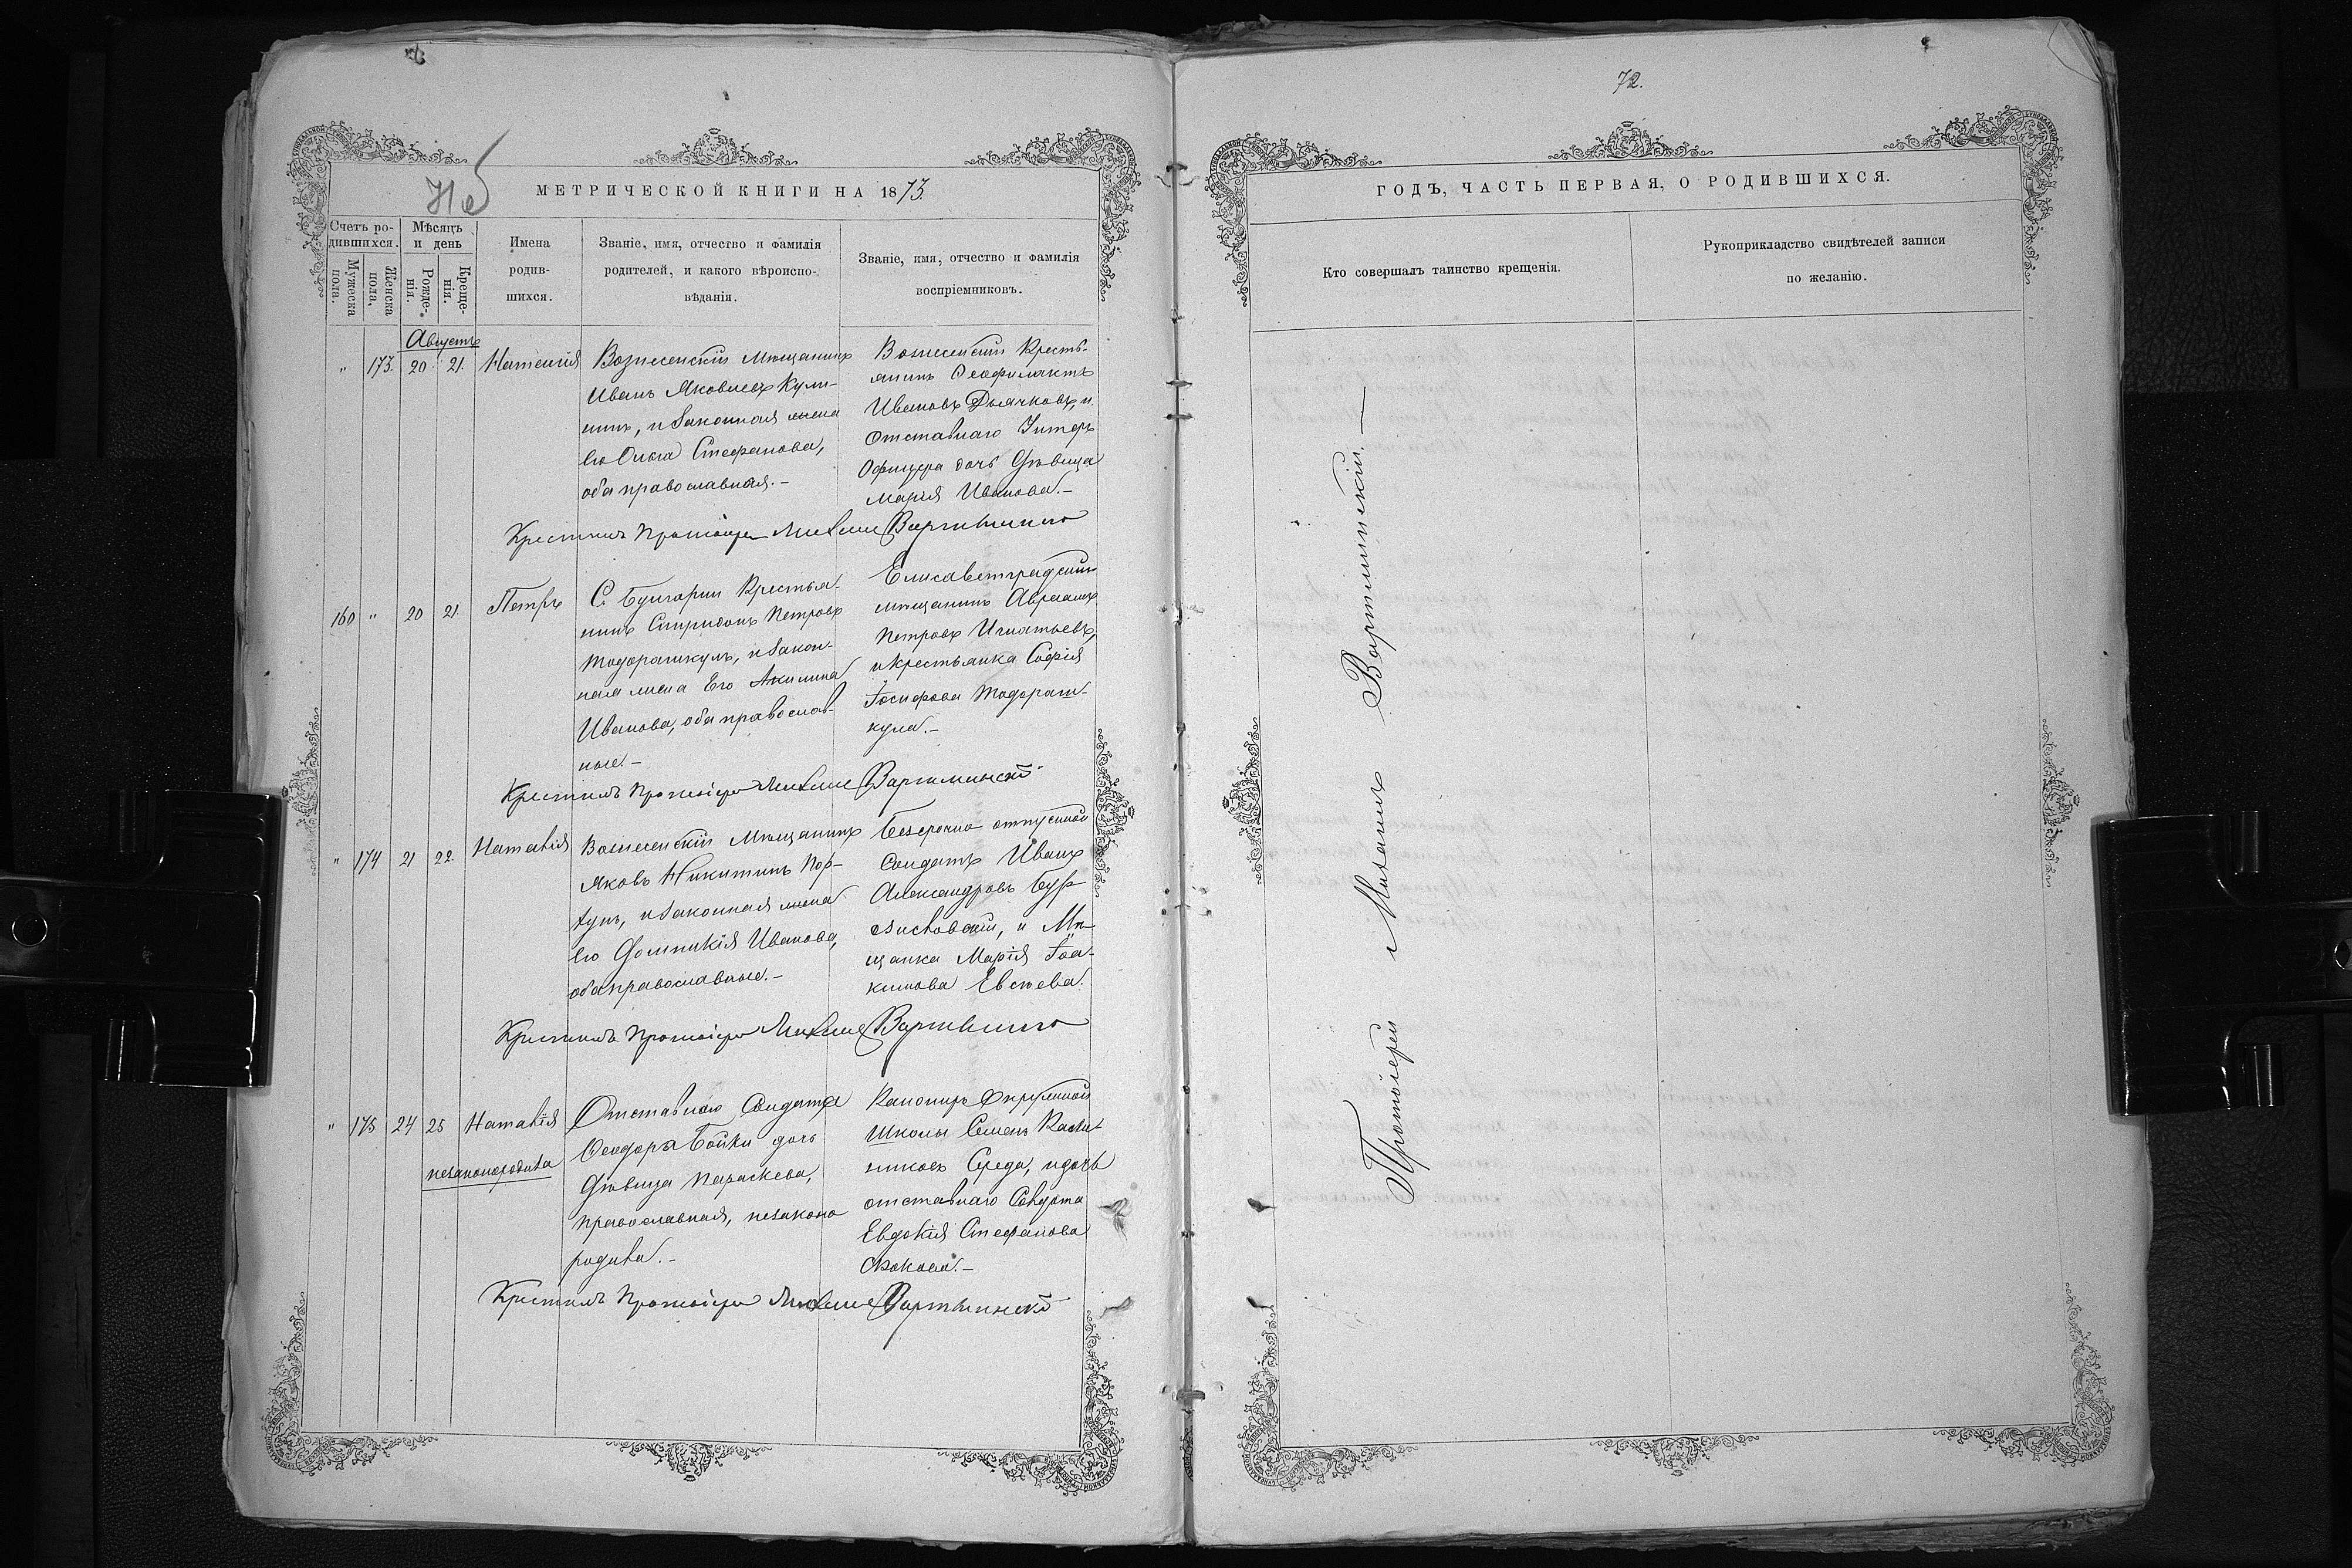 72.
71 об
МЕТРИЧЕСКОЙ КНИГИ НА 1873.
Счетъ ро-
дившихся.
Мужеска
пола.
Женска
пола.
Мѣсяцъ
и день
Рожде-
нія.
Креще-
нія.
Имена
родив-
шихся.
Званіе, имя, отчество и фамилія
родителей, и какого вѣроиспо-
вѣданія.
Званіе, имя, отчество и фамилія
воспріемниковъ.
Августъ
" 173. 20. 21. Наталія
Вознесенскій Мѣщанинъ
Иванъ Яковлевъ Кули-
нинъ, и законная жена
его Ольга Стефанова,
оба православная.-
Вознесенскій Кресть-
янинъ Ѳеофилактъ
Ивановъ Дьячковъ, и
Отставнаго Унтеръ
Офицера дочь Дѣвица
Марія Иванова.-
Крестилъ Протоіерей Михаилъ Вартминскій
160 " 20 21. Петръ
С. Булгарки Крестья-
нинъ Спиридонъ Петровъ
Тодорашкулъ, и закон-
ная жена Его Акилина
Иванова, оба православ-
ные.-
Елисаветградскій
мѣщанинъ Авраамъ
Петровъ Игнатьевъ,
и крестьянка Софія
Іосифова Тодораш-
кула.-
Крестилъ Протоіерей Михаилъ Вартминскій
" 174 21 22. Наталія
Вознесенскій Мѣщанинъ
Яковъ Никитинъ Пор-
тунъ, и законная жена
его Домникія Иванова,
оба православные.-
Безсрочно отпускной
Солдатъ Иванъ
Александровъ
и Мѣ-
щанка Марія Іоа-
кимова Евсѣева.
Крестилъ Протоіерей Михаилъ Вартминскій
" 175 24 25 Наталія
незаконорожденна
Отставнаго Солдата
Ѳеодора Бойки дочь
Дѣвица Параскева,
православная, незаконо
родила.-
Канониръ Окружной
Школы Семенъ
Середа, и дочь
отставнаго Солдата
Евдокія Стефанова
Крестилъ Протоіерей Михаилъ Вартминскій
ГОДЪ, ЧАСТЬ ПЕРВАЯ, О РОДИВШИХСЯ.
Кто совершалъ таинство крещенія.
Рукоприкладство свидѣтелей записи
по желанію.
Протоіерей Михаилъ Вартминскій.—